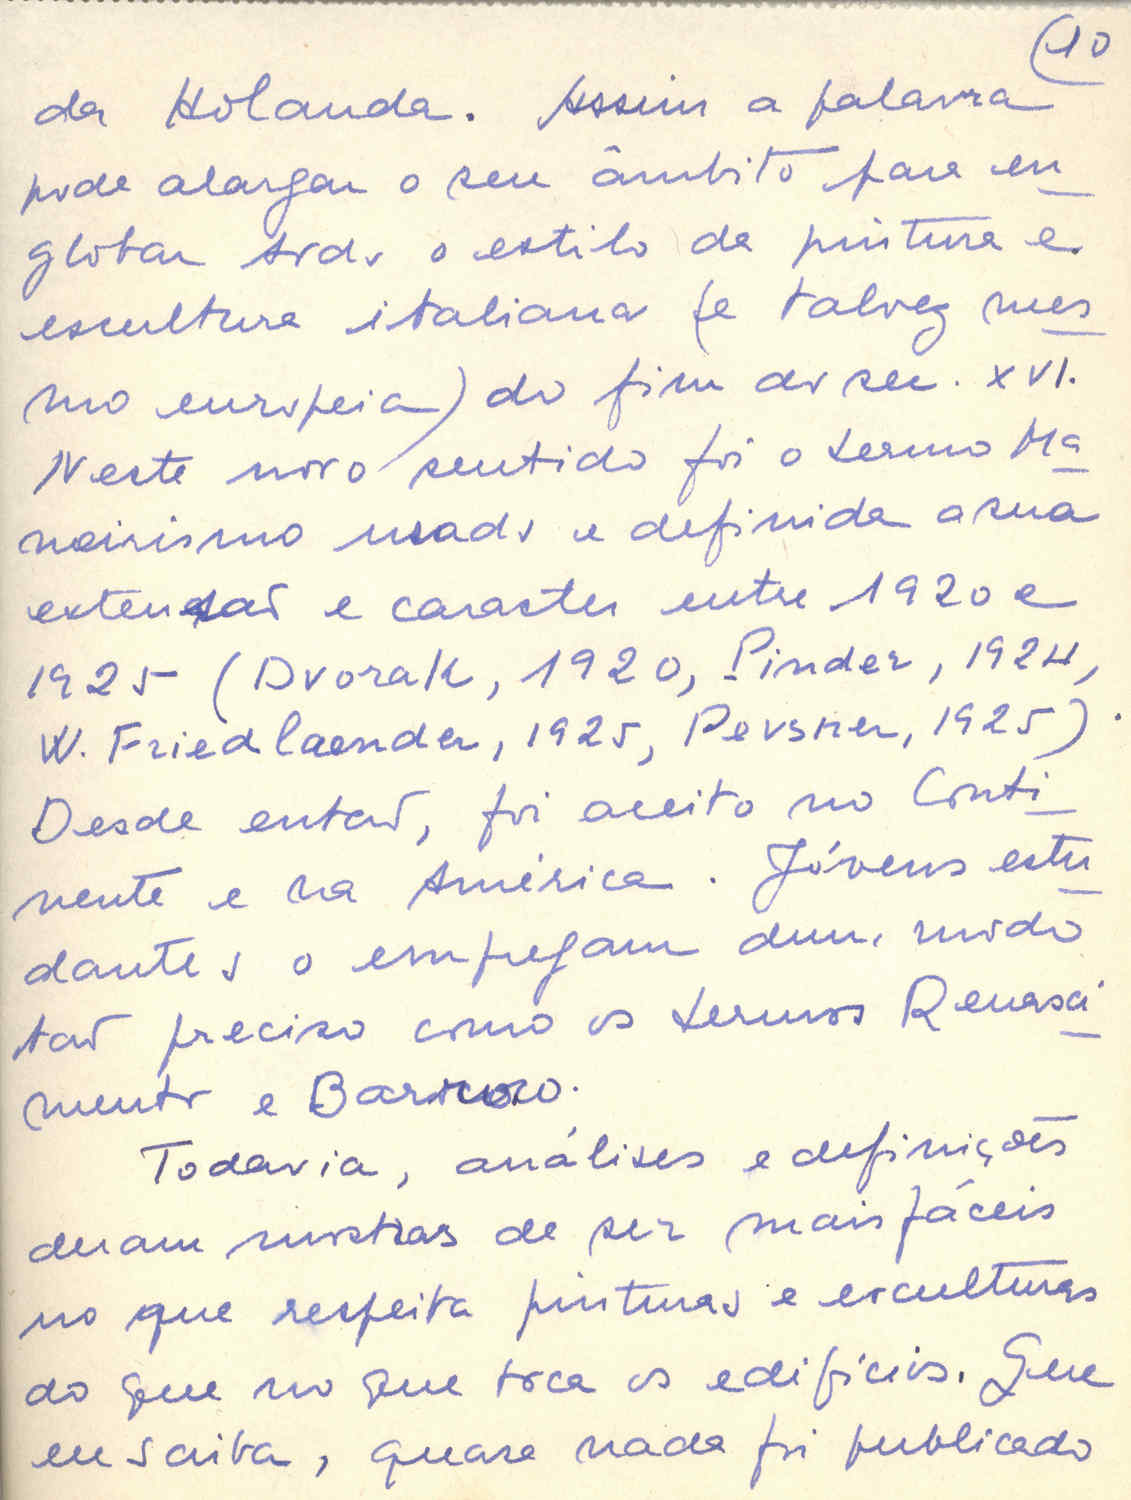 (10
da Holanda. Assim a palavra
pode alargar o seu âmbito para en
globar todo o estilo da pintura e
escultura italiana (e talvez mes
mo europeia) do fim do sec. XVI.
Neste novo sentido foi o termo Ma
neirismo usado e definida a sua
extensão e caracter entre 1920 e
1925 (Dvorak, 1920, Pinder, 1924,
W. Friedlaender, 1925, Pevsner, 1925).
Desde então, foi aceito no Conti
nente e na América. Jóvens estu
dantes o empregam dum modo
tão preciso como os termos Renasci
mento e Barroco.
Todavia, análises e definições
deram mostras de ser mais fáceis
no que respeita pinturas e esculturas
do que no que toca os edifícios. Que
eu saiba, quase nada foi publicado